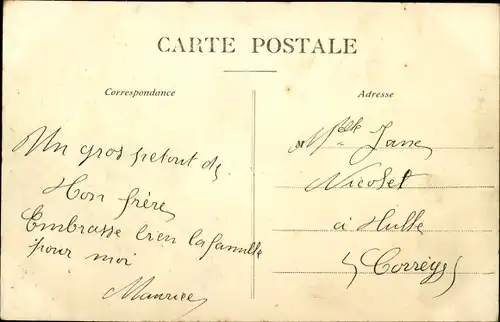 CARTE POSTALE
Correspondance
Adresse
Un gros
Mon frère
Embrasse bien la famille
pour moi
Maurice
Melle Jane
Nicolet
à
(Corrèze)